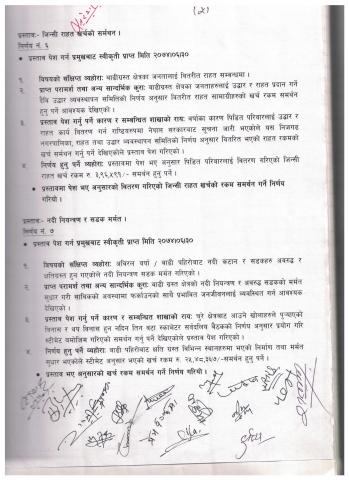 (२)
प्रस्ताव:- जिन्सी राहत खर्चको समर्थन ।
निर्णय नं. ६
● प्रस्ताव पेश गर्न प्रमुखबाट स्वीकृती प्राप्त मिति २०७४।०६।३०
१. विषयको संक्षिप्त व्यहोरा: बाढीग्रस्त क्षेत्रका जनतालाई वितरीत राहत सम्बन्धमा ।
२. प्राप्त परामर्श तथा अन्य सान्दर्भिक कुरा: बाढीग्रस्त क्षेत्रका जनताहरुलाई उद्धार र राहत प्रदान गर्ने
दैवि उद्धार व्यवस्थापन समितिको निर्णय अनुसार वितरीत राहत सामाग्रीहरुको खर्च रकम समर्थन
हुनु पर्ने आवश्यक देखिएको ।
३. प्रस्ताव पेश गर्नु पर्ने कारण र सम्बन्धित शाखाको राय: वर्षाका कारण पिडित परिवारलाई उद्धार र
राहत कार्य वितरण गर्न राष्ट्रियरुपमा नेपाल सरकारबाट सूचना जारी भएकोले यस निजगढ
नगरपालिका, राहत तथा उद्धार समितिको निर्णय अनुसार वितरित भएको राहत रकमको
खर्च समर्थन गर्नु पर्ने देखिएकोले प्रस्ताव पेश गरिएको ।
४. निर्णय हुनु पर्ने व्यहोरा: प्रस्तावमा पेश भए अनुसार पिडित परिवारलाई वितरण गरिएको जिन्सी
राहत खर्च रकम रु. ३,९६,५९१/- समर्थन हुनु पर्ने ।
● प्रस्तावमा पेश भए अनुसारको वितरण गरिएको जिन्सी राहत खर्चको रकम समर्थन गर्ने निर्णय
गरियो ।
प्रस्ताव:- नदी नियन्त्रण र सडक मर्मत ।
निर्णय नं. ७
● प्रस्ताव पेश गर्न प्रमुखबाट स्वीकृती प्राप्त मिति २०७४।०६।३०
१. विषयको संक्षिप्त व्यहोरा: अविरल वर्षा / बाढी पहिरोबाट नदी कटान र सडकहरु अवरुद्ध र
क्षतिग्रस्त हुन गएकोले नदी नियन्त्रण सडक मर्मत गरिएको ।
२. प्राप्त परामर्श तथा अन्य सान्दर्भिक कुरा: बाढी ग्रस्त क्षेत्रको नदी नियन्त्रण र अवरुद्ध सडकको मर्मत
सुधार गरी साविकको अवस्थामा फर्काउनको साथै प्रभावित जनजीवनलाई व्यवस्थित गर्न आवश्यक
देखिएको ।
३. प्रस्ताव पेश गर्नु पर्ने कारण र सम्बन्धित शाखाको राय: चुरे क्षेत्रबाट आउने खोलाहरुले पुऱ्याएको
विनास र थप विनास हुन नदिन तिन वटा स्काभेटर सर्वदलिय बैठकको निर्णय अनुसार प्रयोग गरि
स्टीमेट बमोजिम गरिएको समर्थन गर्नु पर्ने देखिएकोले प्रस्ताव पेश गरिएको ।
४. निर्णय हुनु पर्ने व्यहोरा: बाढी पहिरोबाट क्षति ग्रस्त विभिन्न स्थानहरुमा भएको निर्माण तथा मर्मत
सुधार भएकोले स्टीमेट अनुसार भएको खर्च रकम रु. २५,४८,३६७/-समर्थन हुनु पर्ने ।
● प्रस्ताव भए अनुसारको खर्च रकम समर्थन गर्ने निर्णय गरियो ।